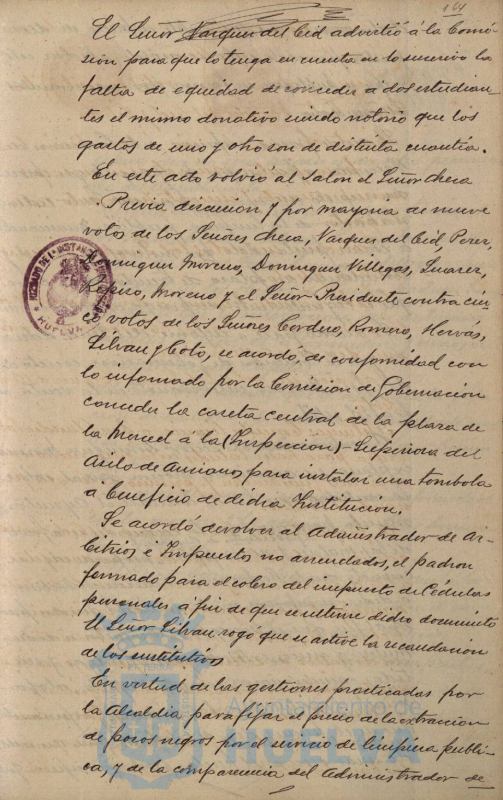 164
El Señor Vazquez del Cid advirtió á la Comi-
sión para que lo tenga en cuenta en lo sucesivo la
falta de equidad de conceder á dos estudian-
tes el mismo donativo siendo notorio que los
gastos de uno y otro son de distinta cuantía.
En este acto volvió al Salon el Señor Checa
Previa discusion y por mayoria de nueve
votos de los Señores Checa, Vazquez del Cid, Perez,
Dominguez Moreno, Dominguez Villegas, Suarez,
Repiso, Moreno y el Señor Presidente contra cin-
co votos de los Señores Cordero, Romero, Hervás,
Silvan y Coto, se acordó, de conformidad con
lo informado por la Comision de Gobernacion
conceder la caseta central de la plaza de
la Merced á la (Inspección)-Superiora del
Asilo de Ancianos para instalar una tombola
á beneficio de dicha Institución.
Se acordó devolver al Administrador de Ar-
bitrios é Impuestos no arrendados, el padron
formado para el cobro del impuesto de Cédulas
personales á fin de que se ultime dicho documento
El Señor Silvan rogó que se active la recaudación
de los sustitutivos
En virtud de las gestiones practicadas por
la Alcaldia para fijar el precio de la extracción
de pozos negros por el servicio de limpieza publi-
ca, y de la comparencia del Administrador de
HUELVA
Ayuntamiento de
HUELVA